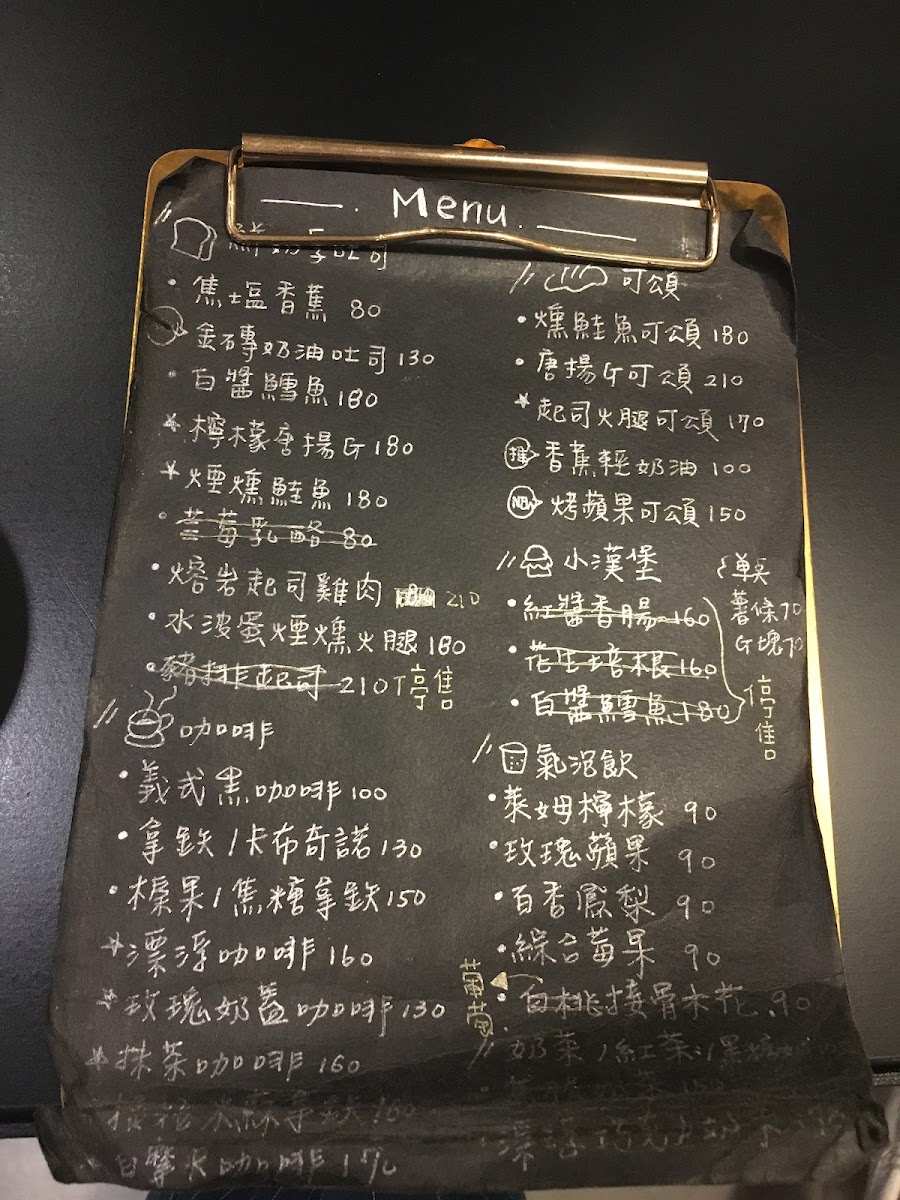 Menu
焦塩香蕉 80
金磚奶油吐司 130
白醬鱈魚 180
檸檬唐揚G 180
煙燻鮭魚 180
草莓乳酪 80
熔岩起司雞肉 210
水波蛋煙燻火腿 180
豬排起司 210 停售
咖啡
義式黑咖啡 100
拿鉄/卡布奇諾 130
榛果/焦糖拿鉄 150
漂浮咖啡 160
玫瑰奶蓋咖啡 130
抹茶咖啡 160
咖啡 170
可頌
燻鮭魚可頌 180
唐揚G可頌 210
起司火腿可頌 170
推 香蕉輕奶油 100
NEW 烤蘋果可頌 150
小漢堡
紅醬香腸 160
花生培根 160
白醬鱈魚 180
單點
薯條 70
G塊 70
停售
氣泡飲
萊姆檸檬 90
玫瑰蘋果 90
百香鳳梨 90
綜合莓果 90
白桃接骨木花 90
奶茶/紅茶/